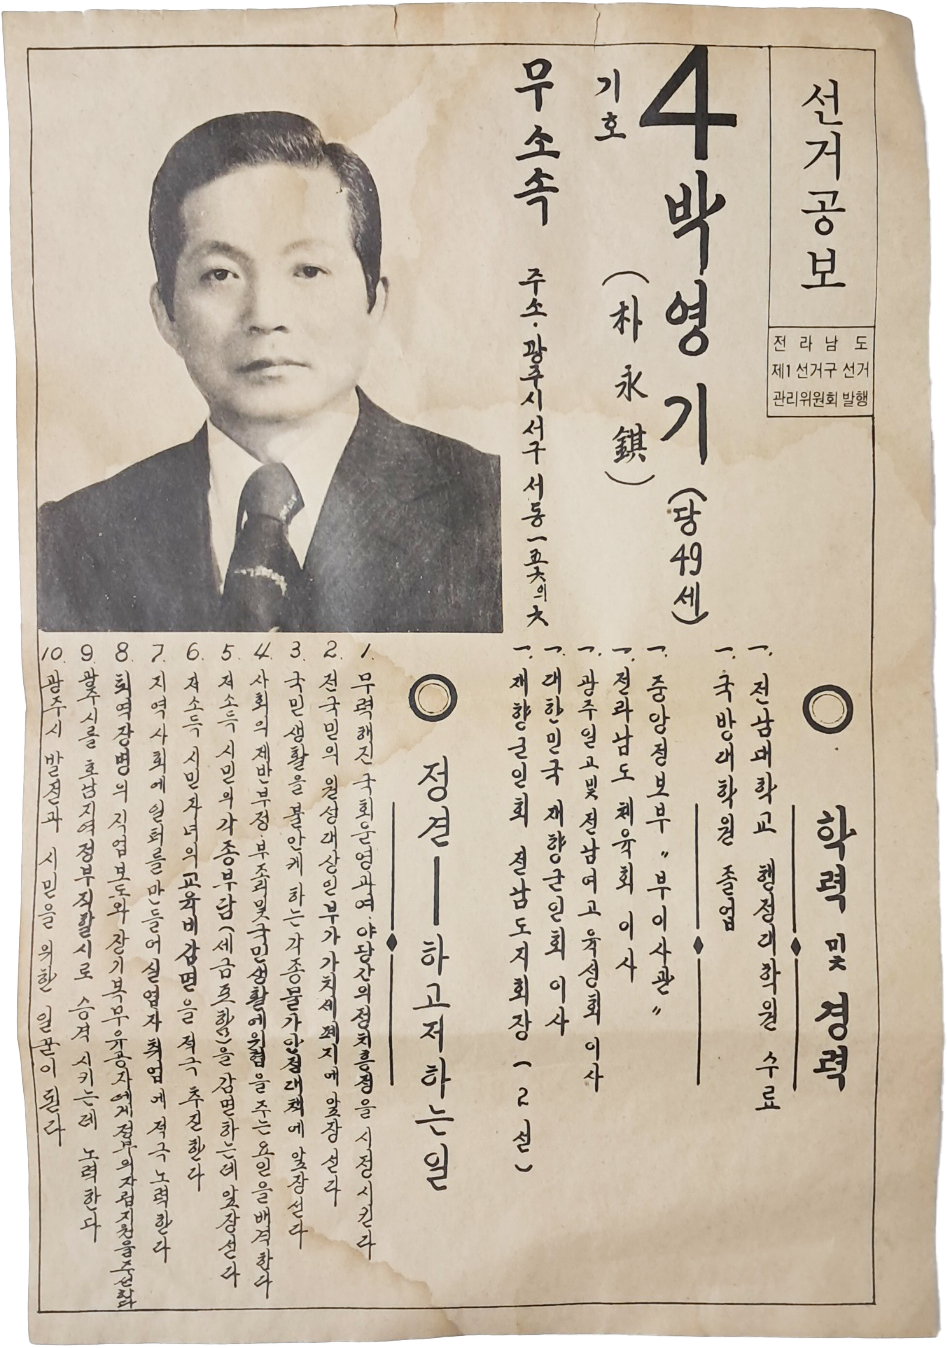 선거공보
전라남도
제1선거구 선거
관리위원회 발행
4 박영기 (당49세)
기호
(朴永錤)
무소속
주소·광주시 서구 서동 一五六의 六
학력 및 경력
一. 전남대학교 행정대학원 수료
一. 국방대학원 졸업
一. 중앙정보부 〃부이사관〃
一. 전라남도 체육회 이사
一. 광주일고및 전남여고 육성회 이사
一. 대한민국 재향군인회 이사
一. 재향군인회 전남도지회장 (2선)
정견—하고저하는일
1. 무력해진 국회운영과 여·야당간의 정치흥정을 시정시킨다
2. 전국민의 원성대상인 부가가치세 폐지에 앞장선다
3. 국민생활을 불안케 하는 각종물가안정대책에 앞장선다
4. 사회의 제반부정·부조리및 국민생활에 위협을 주는 요인을 배격한다
5. 저소득 시민의 각종부담(세금포함)을 감면하는데 앞장선다
6. 저소득 시민자녀의 교육비감면을 적극 추진한다
7. 지역사회에 일터를 만들어 실업자 취업에 적극 노력한다
8. 퇴역장병의 직업보도와 장기복무유공자에게 정부의 자립지원을 주선한다
9. 광주시를 호남지역 정부직활시로 승격 시키는데 노력한다
10. 광주시 발전과 시민을 위한 일꾼이 된다